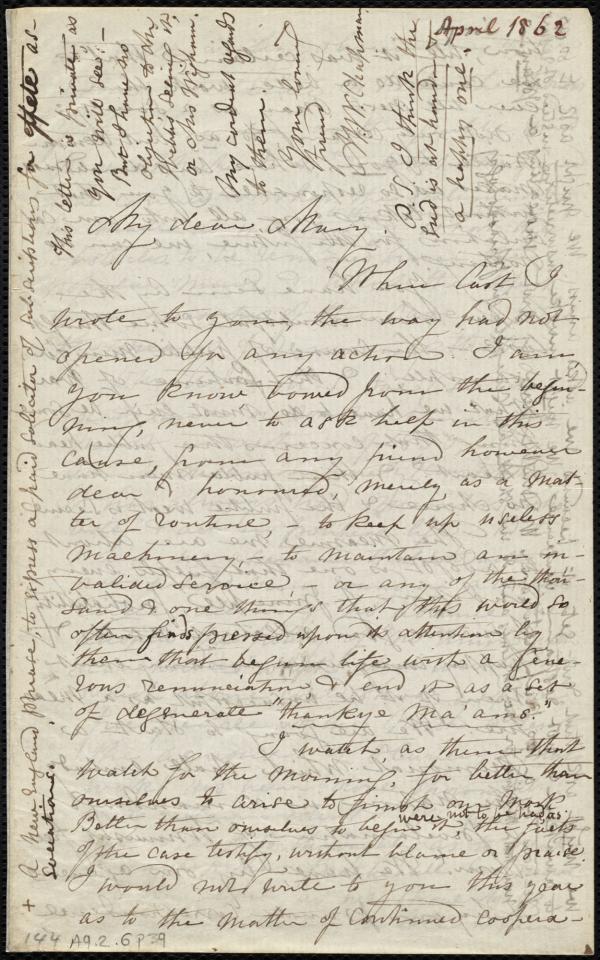 April 1862
This letter is private as
you will see:—
But I have no
objection to the
Webbs seeing it,
or Miss Wigham.
My cordial regards
to them.
Your loving
friend
M. W. Chapman.
P.S. I think the
end is at hand, &
a happy one.
My dear Mary.
When last I
wrote to you, the way had not
opened for any action. I am
you know vowed from the begin-
ning, never to ask help in this
cause, from any friend however
dear & honoured, merely as a mat-
ter of routine, — to keep up useless
machinery, — to maintain an in-
valided service, — or any of the thou-
sand & one things that this world so
often finds pressed upon its attention by
them that begun life with a gene-
rous renunciation, & end it as a set
of degenerate "thankye ma'ams."
I watch, as them that
watch for the morning, for better than
ourselves to arise to finish our work.
Better than ourselves to begin it, were not to be had as the facts
of the case testify, without blame or praise.
I would not write to you this year
as to the matter of continued coopera-
+ A New England phrase, to express a hard solicitor of subscriptions for effete as-
sociations.
144 A9.2.6 P 39